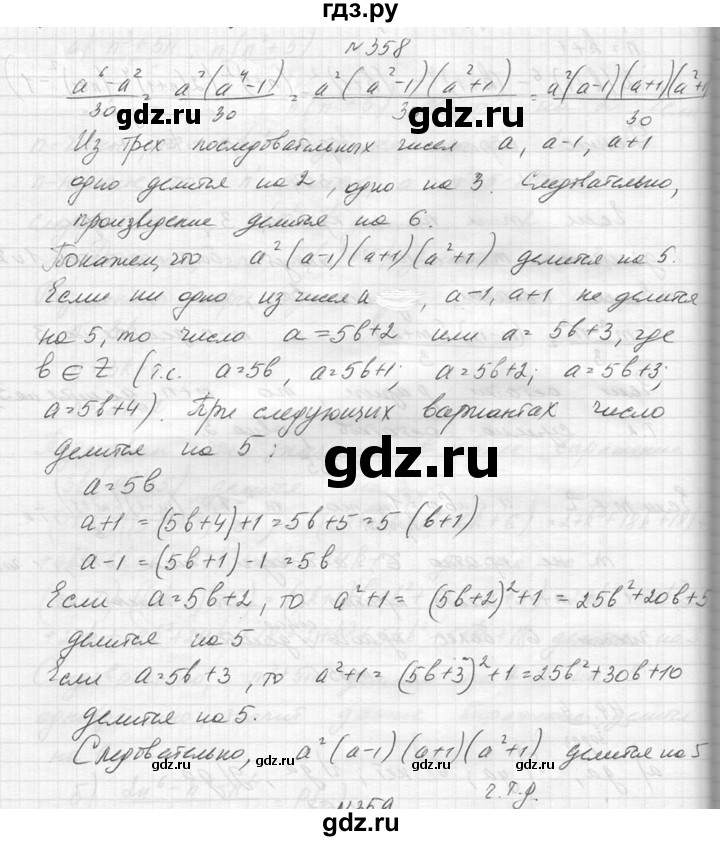 гдз.ру
№358
a⁶-a²/30 = a²(a⁴-1)/30 = a²(a²-1)(a²+1)/30 = a²(a-1)(a+1)(a²+1)/30
gdz.ru gdz.ru gdz.ru
Из трех последовательных чисел a, a-1, a+1
одно делится на 2, одно на 3. Следовательно,
произведение делится на 6.
Покажем, что a²(a-1)(a+1)(a²+1) делится на 5.
Если ни одно из чисел a , a-1, a+1 не делится
на 5, то число a=5b+2 или a=5b+3, где
b∈Z (т.с. a=5b, a=5b+1; a=5b+2; a=5b+3;
a=5b+4). При следующих вариантах число
делится на 5:
gdz.ru
a=5b
a+1=(5b+4)+1=5b+5=5(b+1)
a-1=(5b+1)-1=5b
Если a=5b+2, то a²+1=(5b+2)²+1=25b²+20b+5
делится на 5
Если a=5b+3, то a²+1=(5b+3)²+1=25b²+30b+10
делится на 5.
Следовательно, a²(a-1)(a+1)(a²+1) делится на 5
gdz.ru gdz.ru gdz.ru
ч.т.д.
№359
gdz.ru